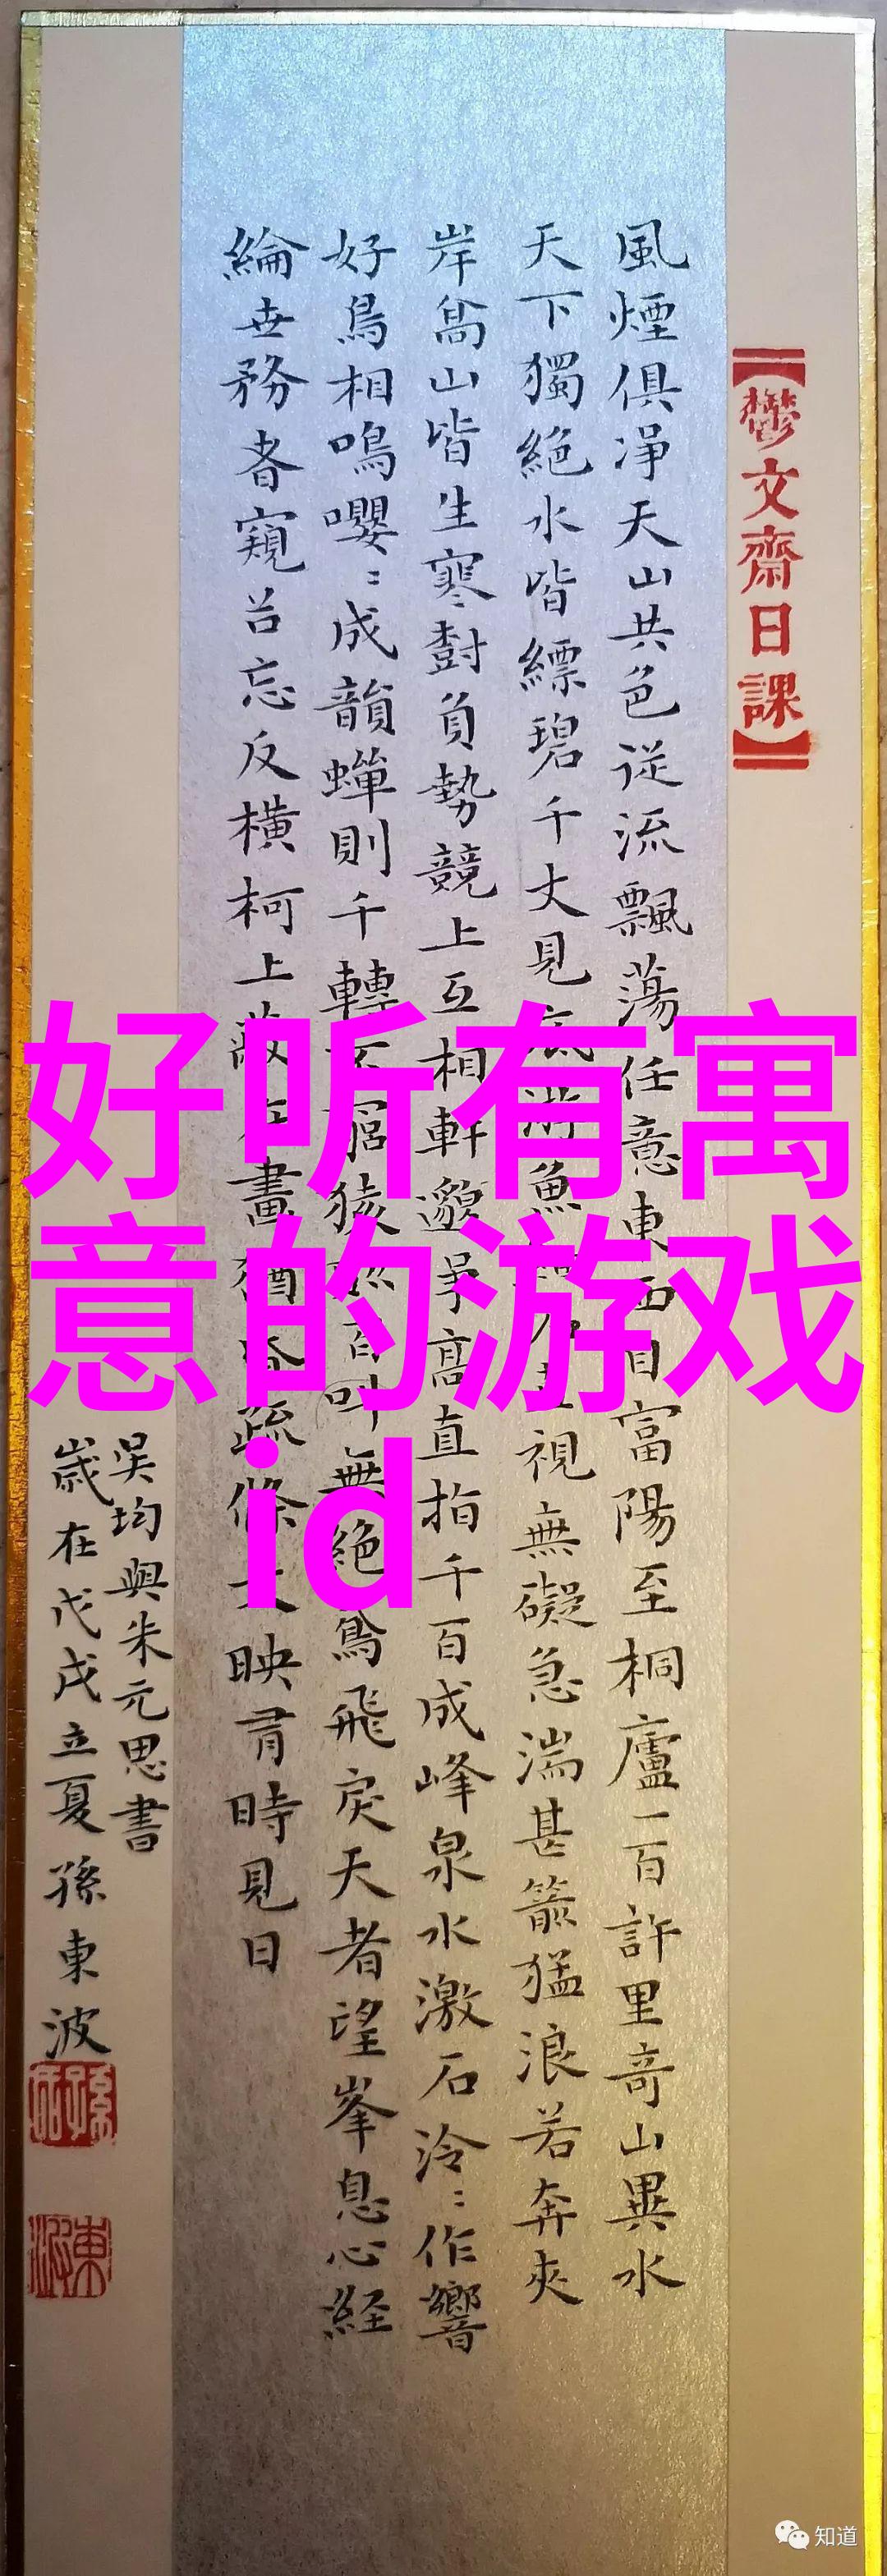 【鬱文齋日課】
風煙俱淨天山共色從流飄蕩任意東西自富陽至桐廬一百許里奇山異水
天下獨絕水皆縹碧千丈見底游魚視無礙急湍甚箭猛浪若奔夾
岸高山皆生寒樹負勢競上互相軒邈爭高直指千百成峰泉水激石泠〻作響
好鳥相鳴嚶〻成韻蟬則千轉不窮猿百叫無絕鳶飛戾天者望峯息心経
綸世務者窺谷忘反橫柯上蔽在晝猶昏疏條交映有時見日
吳均與朱元思書
歲在戊戌立夏孫東波
好听有寓
意的游戏
id
知道